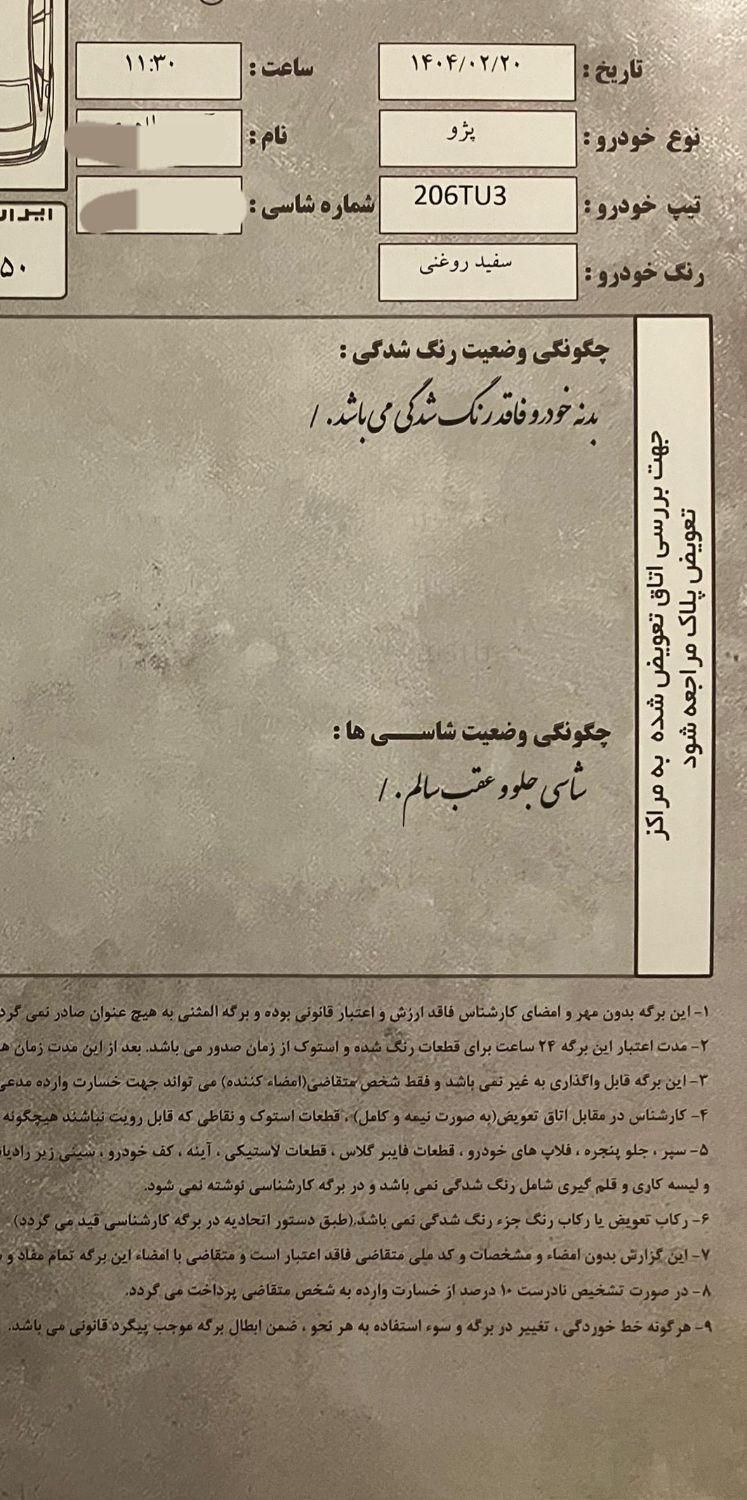 تاریخ : ۱۴۰۴/۰۲/۲۰ ساعت : ۱۱:۳۰
نوع خودرو : پژو نام :
تیپ خودرو : 206TU3 شماره شاسی :
رنگ خودرو : سفید روغنی
۵۰
چگونگی وضعیت رنگ شدگی :
بدنه خودرو فاقد رنگ شدگی می باشد. /
جهت بررسی اتاق تعویض شده به مراکز
تعویض پلاک مراجعه شود
چگونگی وضعیت شاسی ها :
شاسی جلو و عقب سالم. /
۱- این برگه بدون مهر و امضای کارشناس فاقد ارزش و اعتبار قانونی بوده و برگه المثنی به هیچ عنوان صادر نمی گرد
۲- مدت اعتبار این برگه ۲۴ ساعت برای قطعات رنگ شده و استوک از زمان صدور می باشد. بعد از این مدت زمان ه
۳- این برگه قابل واگذاری به غیر نمی باشد و فقط شخص متقاضی(امضاء کننده) می تواند جهت خسارت وارده مدعی
۴- کارشناس در مقابل اتاق تعویض(به صورت نیمه و کامل) ، قطعات استوک و نقاطی که قابل رویت نباشند هیچگونه
۵- سپر ، جلو پنجره ، فلاپ های خودرو ، قطعات فایبر گلاس ، قطعات لاستیکی ، آینه ، کف خودرو ، سینی زیر رادیا
و لیسه کاری و قلم گیری شامل رنگ شدگی نمی باشد و در برگه کارشناسی نوشته نمی شود.
۶- رکاب تعویض یا رکاب رنگ جزء رنگ شدگی نمی باشد.(طبق دستور اتحادیه در برگه کارشناسی قید می گردد)
۷- این گزارش بدون امضاء و مشخصات و کد ملی متقاضی فاقد اعتبار است و متقاضی با امضاء این برگه تمام مفاد و
۸- در صورت تشخیص نادرست ۱۰ درصد از خسارت وارده به شخص متقاضی پرداخت می گردد.
۹- هرگونه خط خوردگی ، تغییر در برگه و سوء استفاده به هر نحو ، ضمن ابطال برگه موجب پیگرد قانونی می باشد.